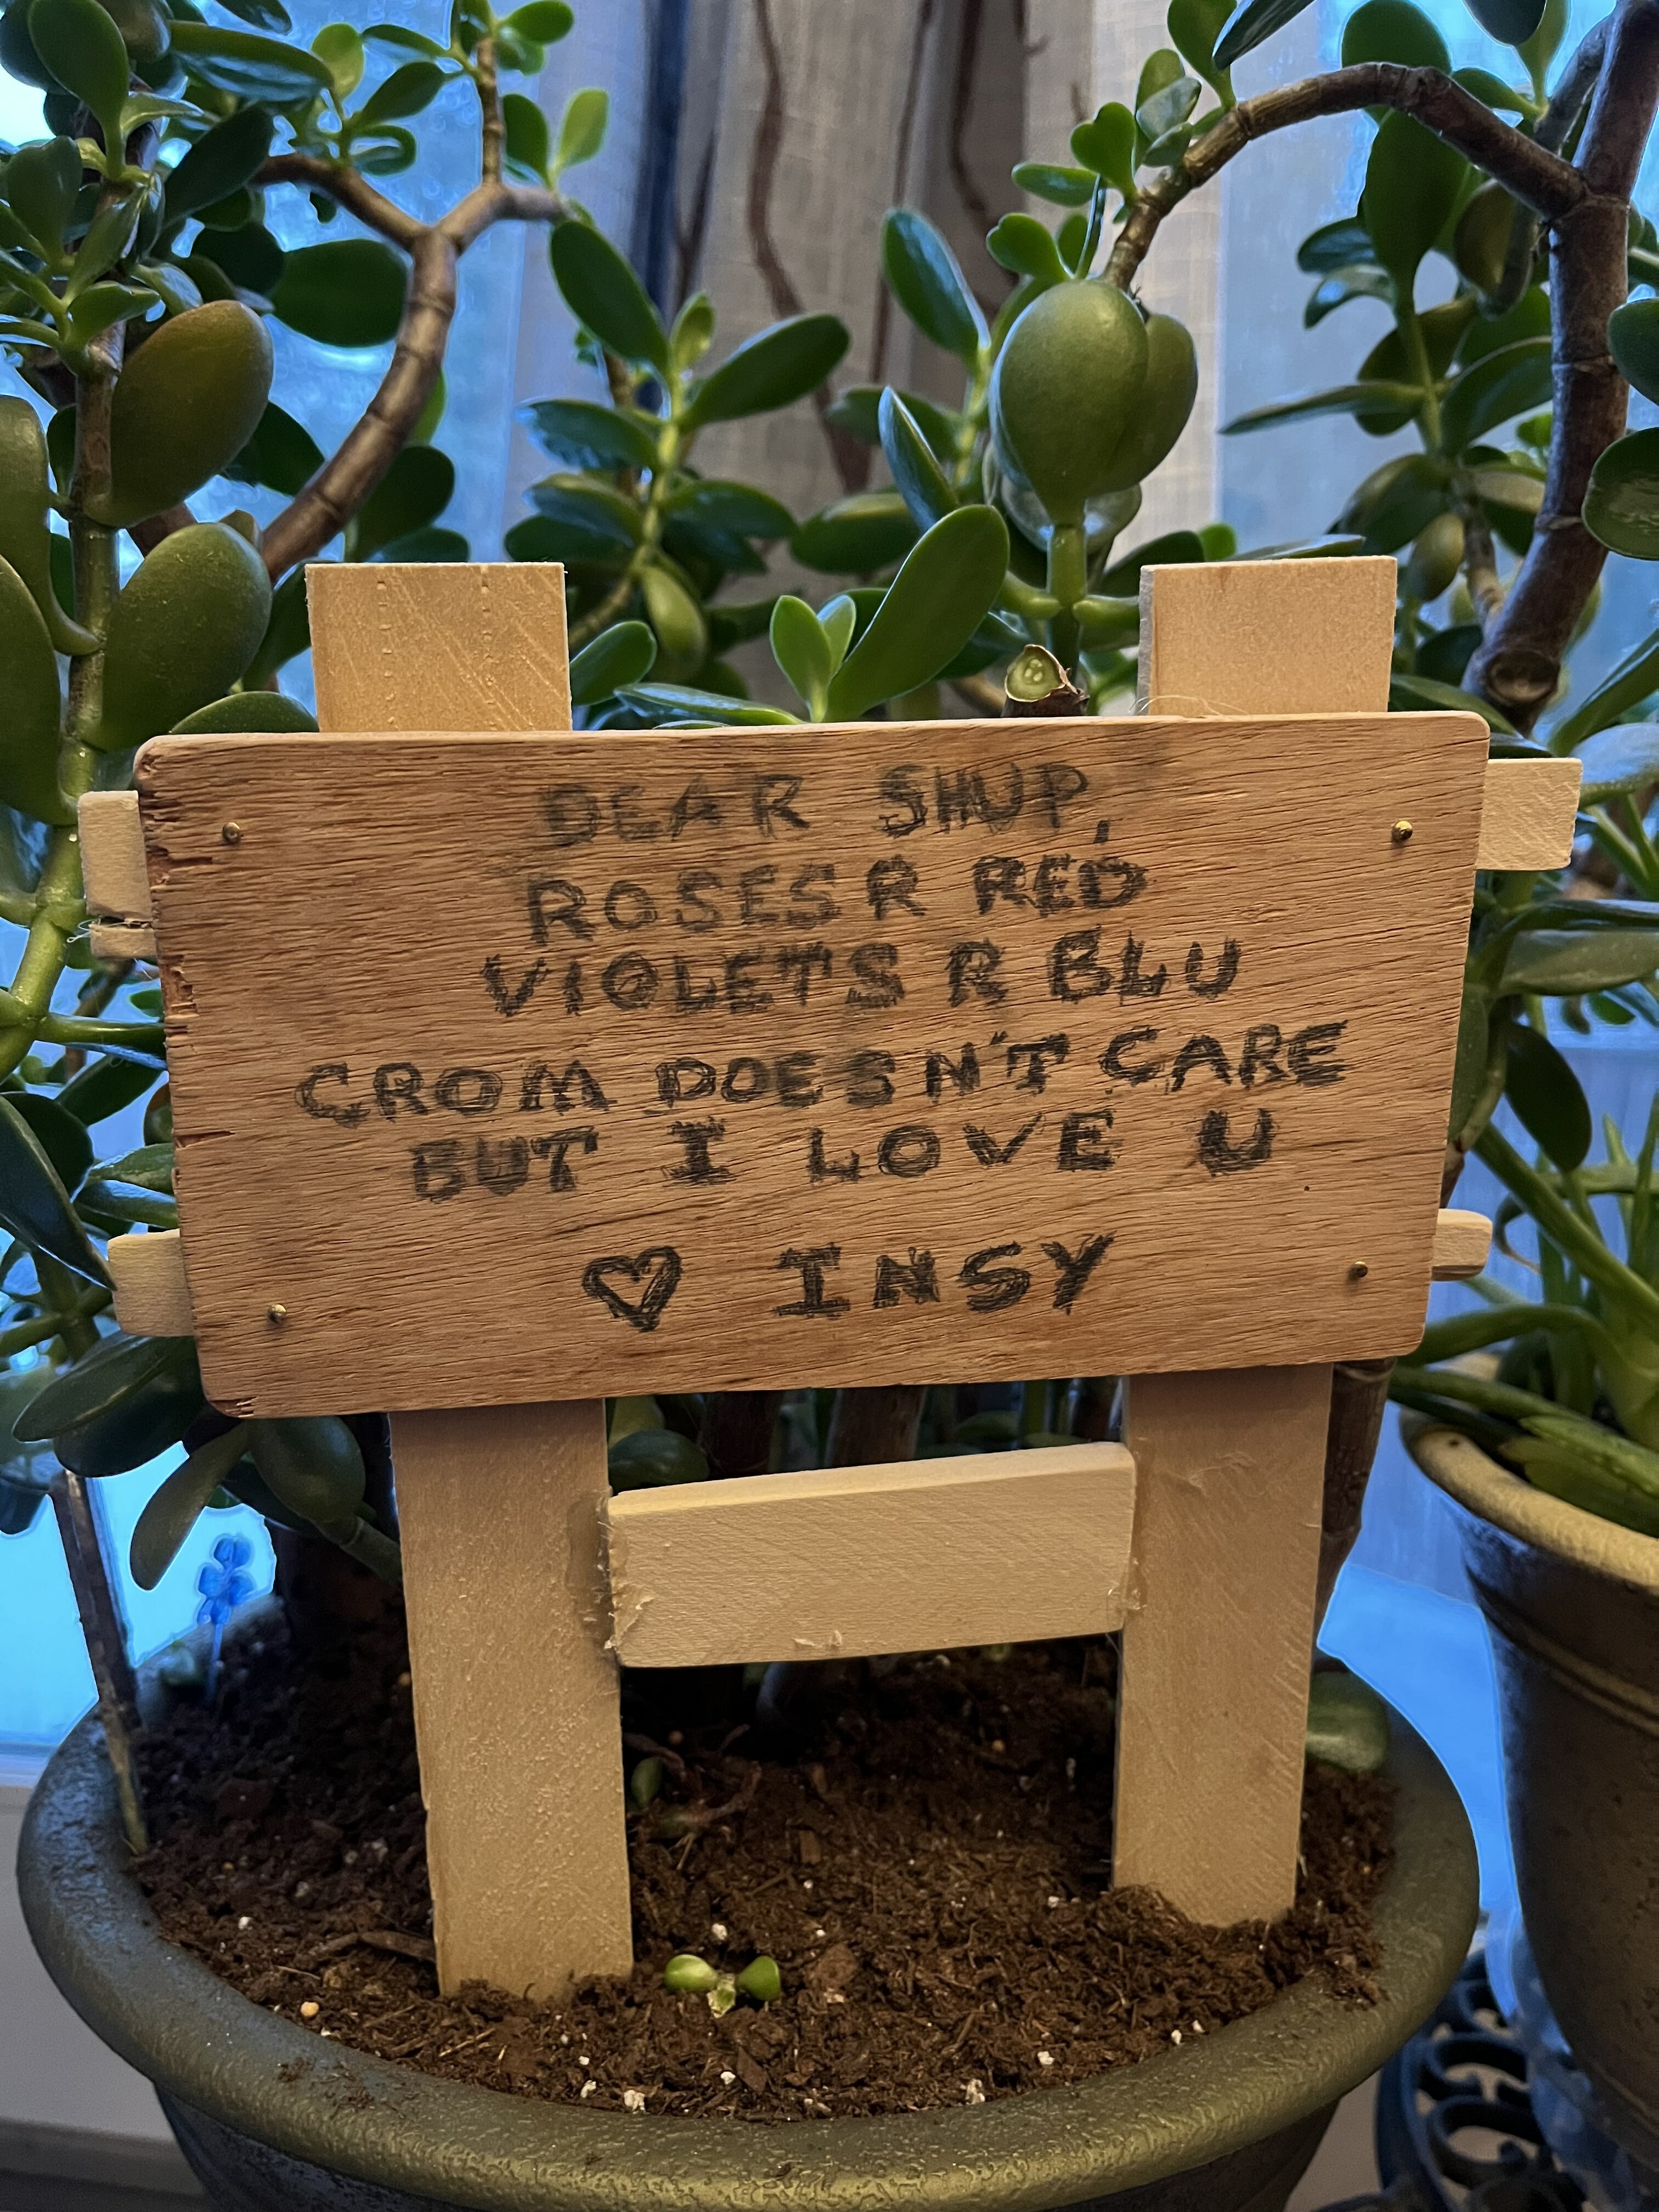 DEAR SHUP,
ROSES R RED
VIOLETS R BLU
CROM DOESN'T CARE
BUT I LOVE U
♡ INSY